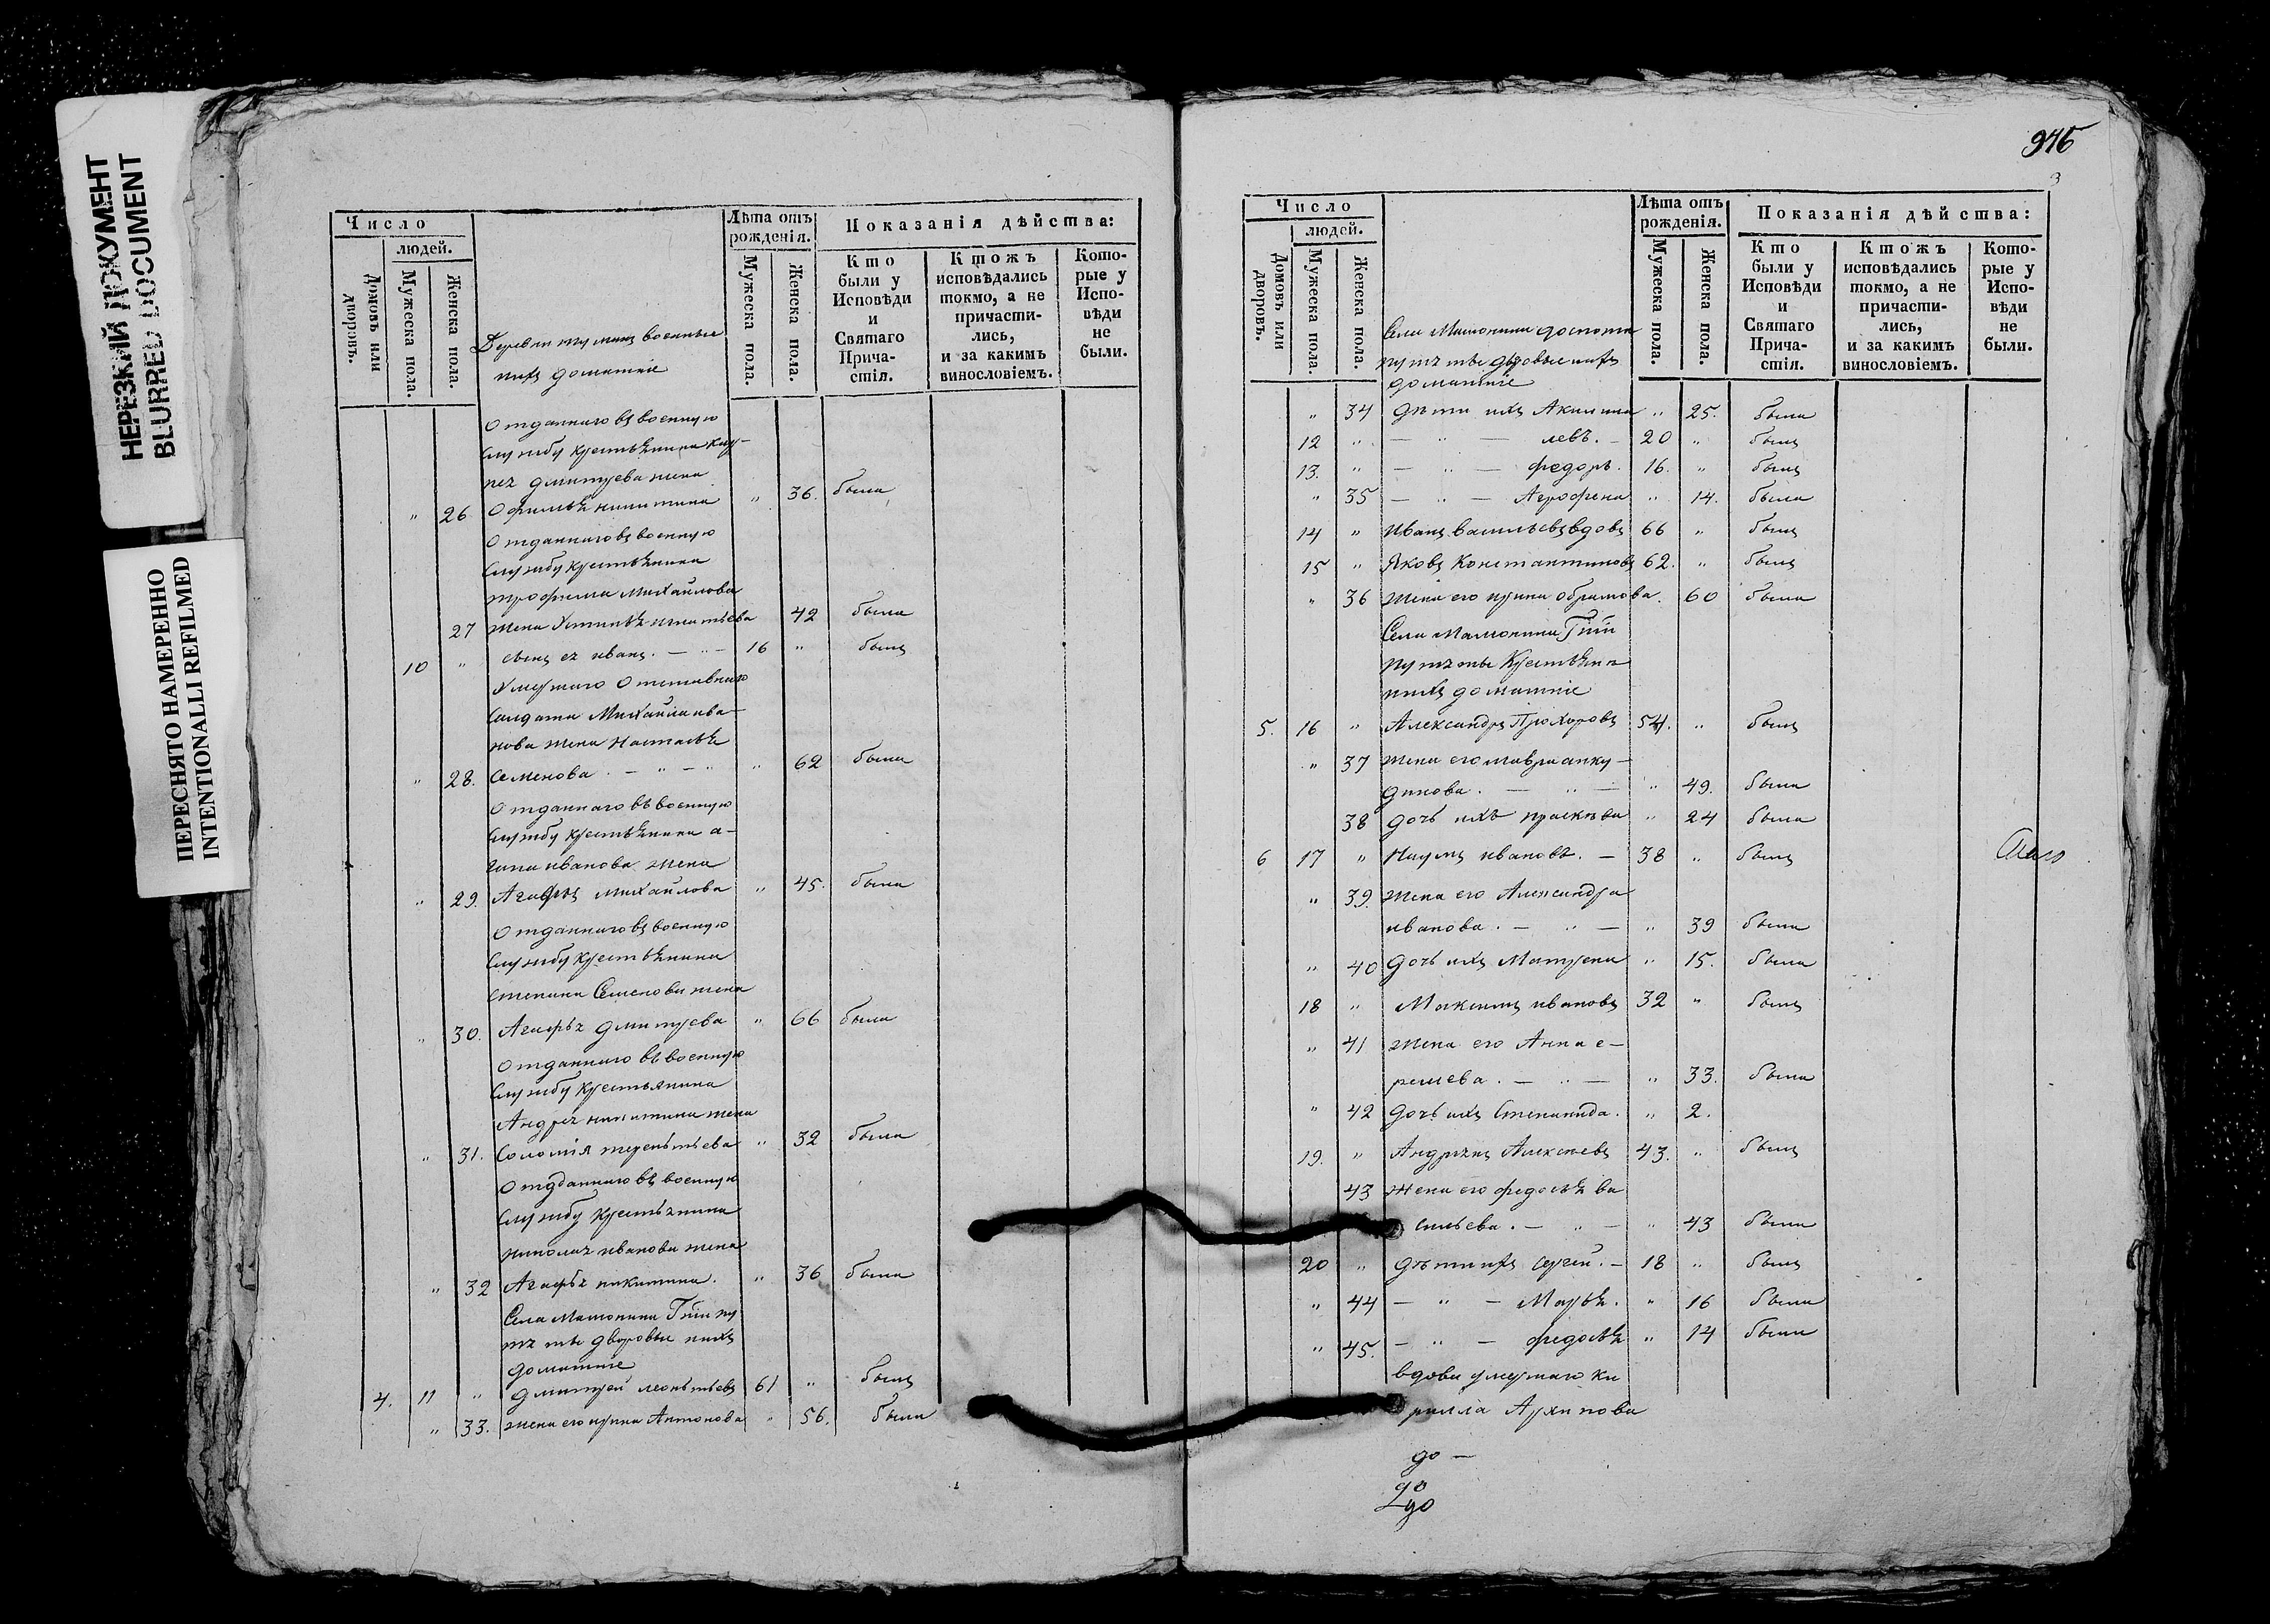 НЕРЕЗКИЙ ДОКУМЕНТ
BLURRED DOCUMENT
ПЕРЕСНЯТО НАМЕРЕННО
INTENTIONALLI REFILMED
Число
людей.
Домовъ или дворовъ.
Мужеска пола.
Женска пола.
Деревни военные
нихъ домашніе
Лѣта отъ рожденія.
Мужеска пола.
Женска пола.
Показанія дѣйства:
Кто были у Исповѣди и Святаго Прича-стія.
Ктожъ исповѣдались токмо, а не причасти-лись, и за какимъ винословіемъ.
Кото-рые у Испо-вѣди не были.
Отданнаго въ военную
службу крестьянина
дмитрева жена
" 26 никитина " 36. была
Отданнаго въ военную
службу крестьянина
трофима Михайлова
27 жена Устинья игнатьева 42 была
10 " сынъ ея иванъ. — " — 16 " былъ
Умершаго отставнаго
салдата Михайла ива-
нова жена Настасья
" 28. Семенова. — " — " " 62 была
Отданнаго въ военную
службу крестьянина
иванова жена
" 29. Агафья Михайлова " 45. была
Отданнаго въ военную
службу крестьянина
степана Семенова жена
" 30. Агафья дмитрева " 66 была
Отданнаго въ военную
службу крестьянина
Андрея никитина жена
" 31. Соломія терентьева " 32 была
Отданнаго въ военную
службу крестьянина
николая иванова жена
" 32 Агафья никитина. " 36 была
Села Мамонина Гпжи пу
тяты дворовые нихъ
домашніе
4. 11 " дмитрей леонтьевъ 61 " былъ
" 33. жена его ирина Антонова " 56. была
946
3
Число
людей.
Домовъ или дворовъ.
Мужеска пола.
Женска пола.
Села Мамонина госпожи
путяты дворовые нихъ
домашніе
Лѣта отъ рожденія.
Мужеска пола.
Женска пола.
Показанія дѣйства:
Кто были у Исповѣди и Святаго Прича-стія.
Ктожъ исповѣдались токмо, а не причасти-лись, и за какимъ винословіемъ.
Кото-рые у Испо-вѣди не были.
" 34 дѣти ихъ Акилина " 25. была
12 " — " — левъ. — 20 " былъ
13. " — " — федоръ. 16. " былъ
" 35 — " — Агрофена " 14. была
14 " Иванъ васильевъ вдовъ 66 " былъ
15 " Яковъ Константиновъ 62. " былъ
" 36 жена его ирина обрамова. 60 была
Села Мамонина Гпжи
путяты Крестьяня
нихъ домашніе
5. 16 " Александръ Прохоровъ 54. " былъ
" 37 жена его мавріанку —
динова. — " — " 49. была
38 дочь ихъ прасковья " 24 была
6 17 " Наумъ ивановъ. — 38 " былъ
" 39. жена его Александра
иванова. — " — " 39 была
" 40 дочь ихъ Матрена " 15. была
18 " Максимъ ивановъ 32 " былъ
" 41 жена его Анна е —
ремева. — " — " 33. была
" 42 дочь ихъ Степанида. " 2.
19. " Андреянъ Алексѣевъ 43. " былъ
43 жена его федосья ва
сильева. — " — " 43 была
20 " дѣти ихъ сергей. — 18 " былъ
" 44 — " — Марья. " 16 была
" 45. — " — федосья " 14 была
вдова умершаго ки
рилла Архипова
до —
до
до